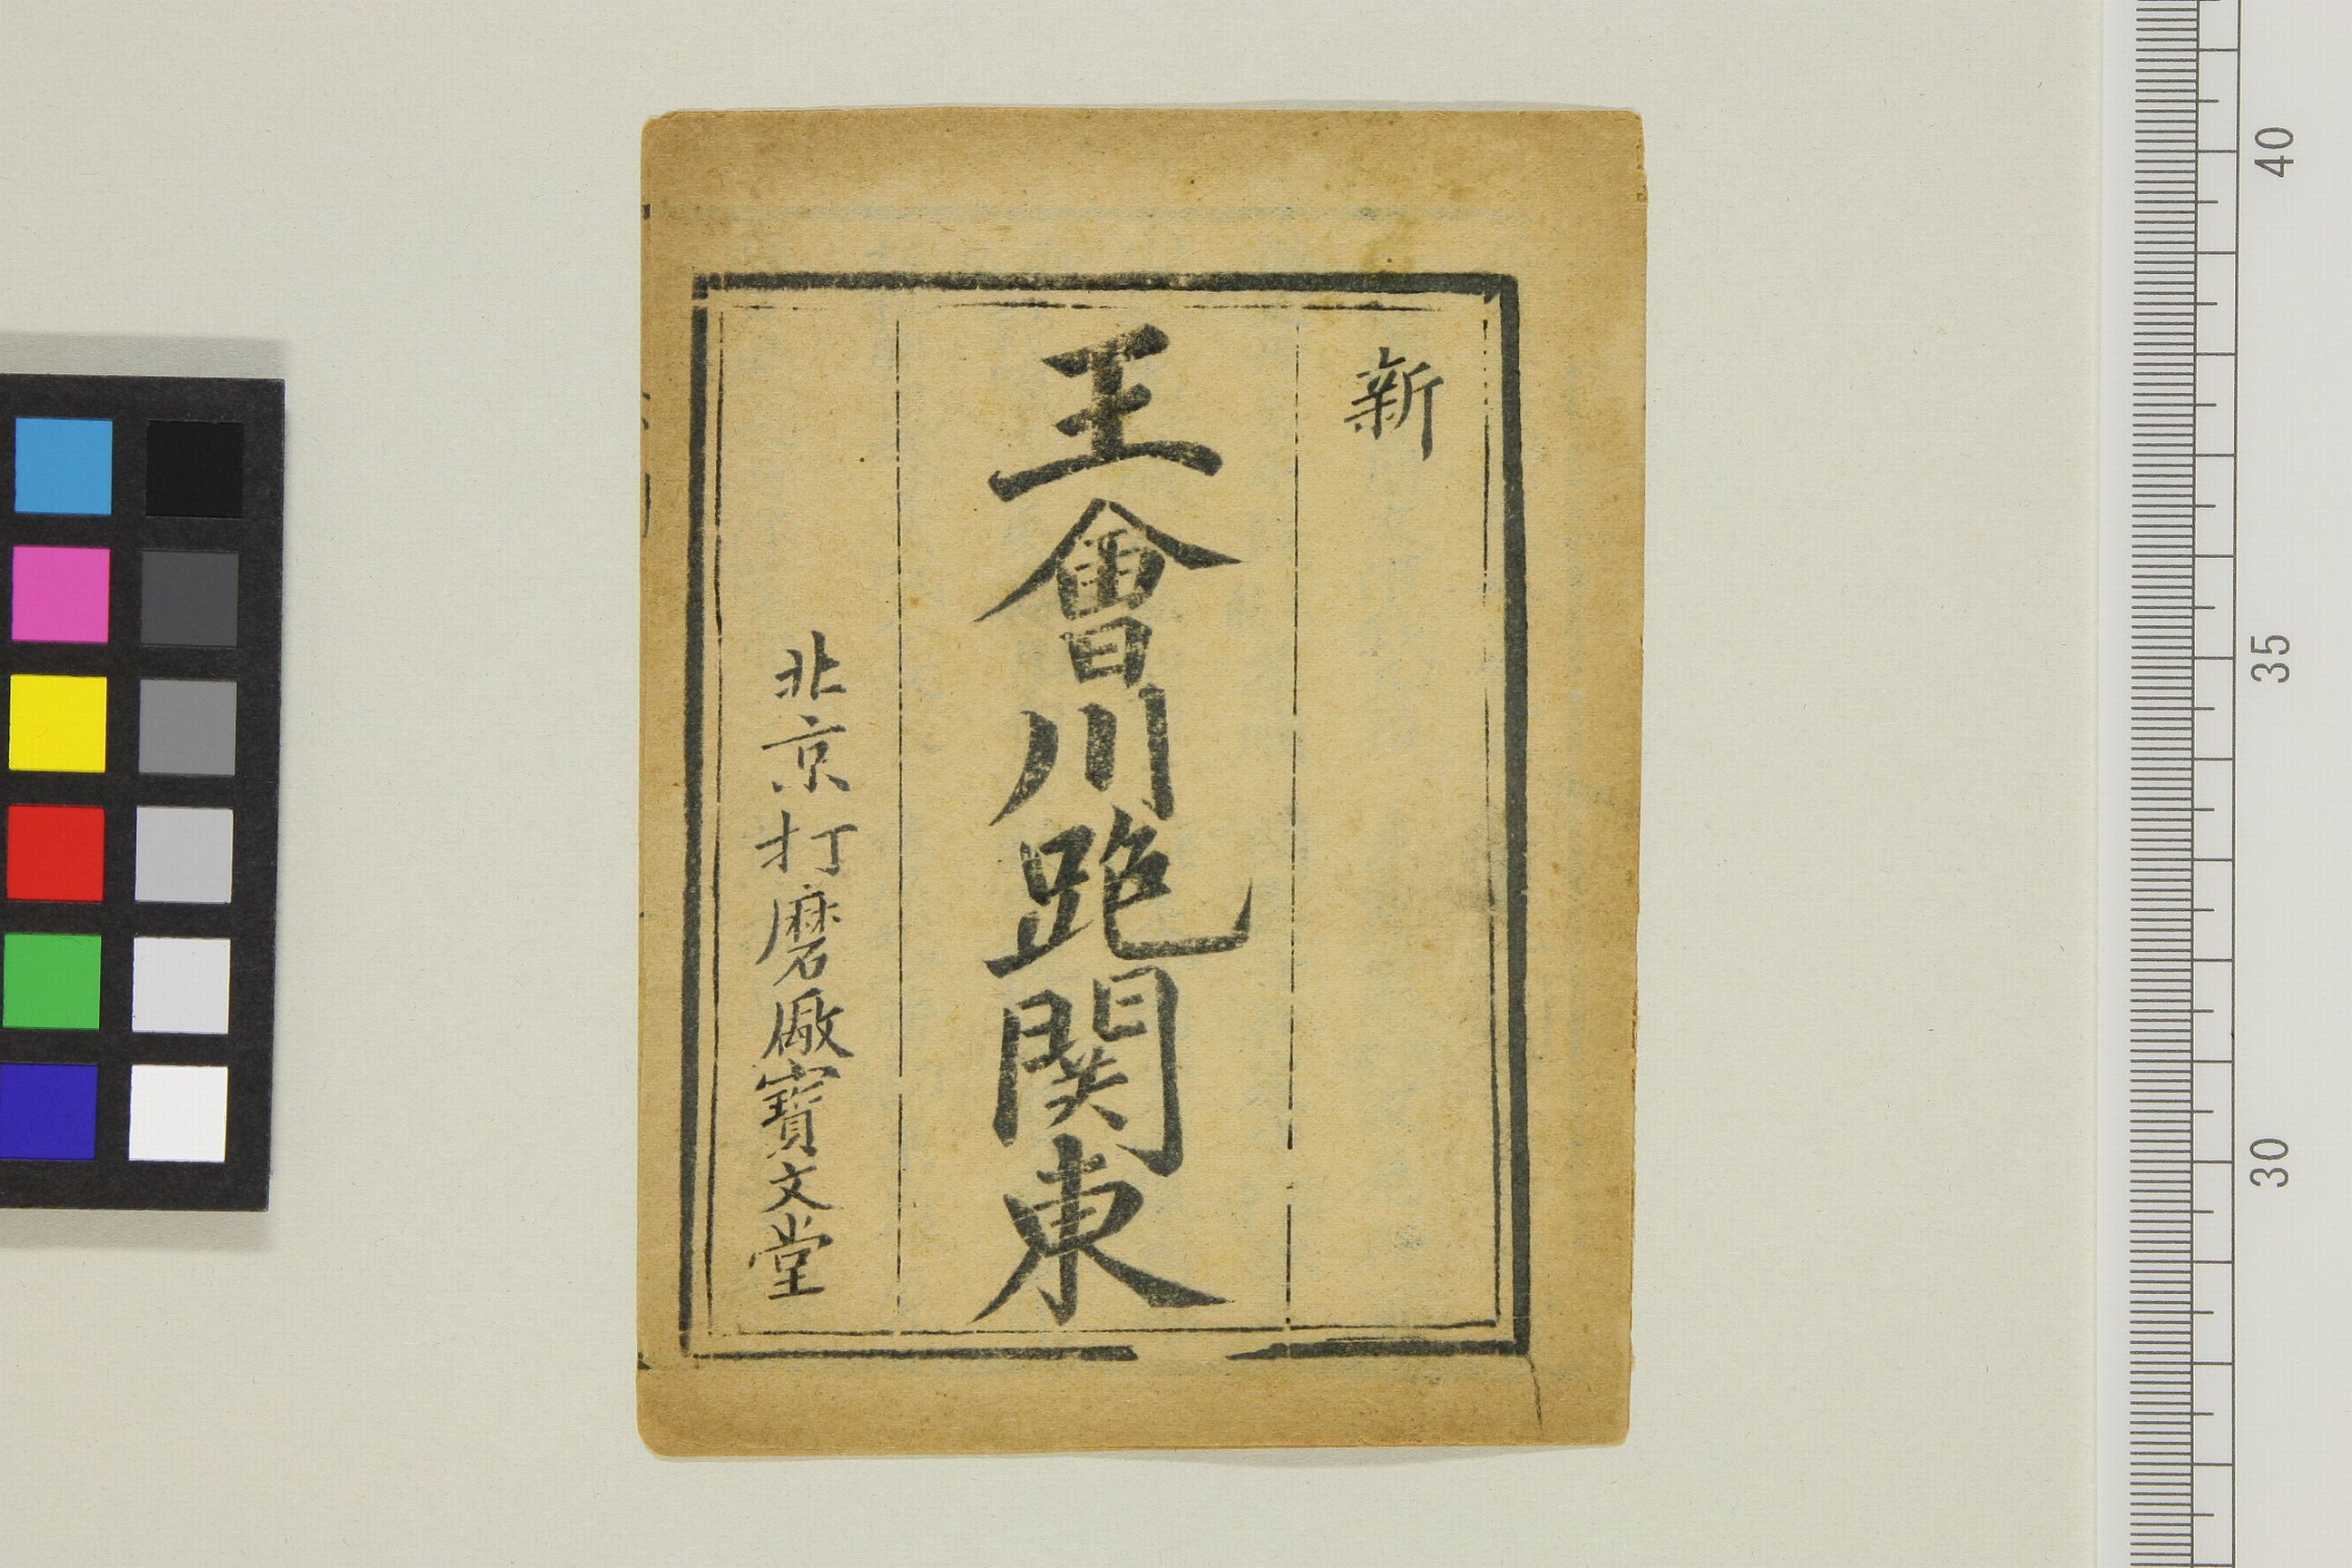 新
王會川跑関東
北京打磨厰寳文堂
40
35
30